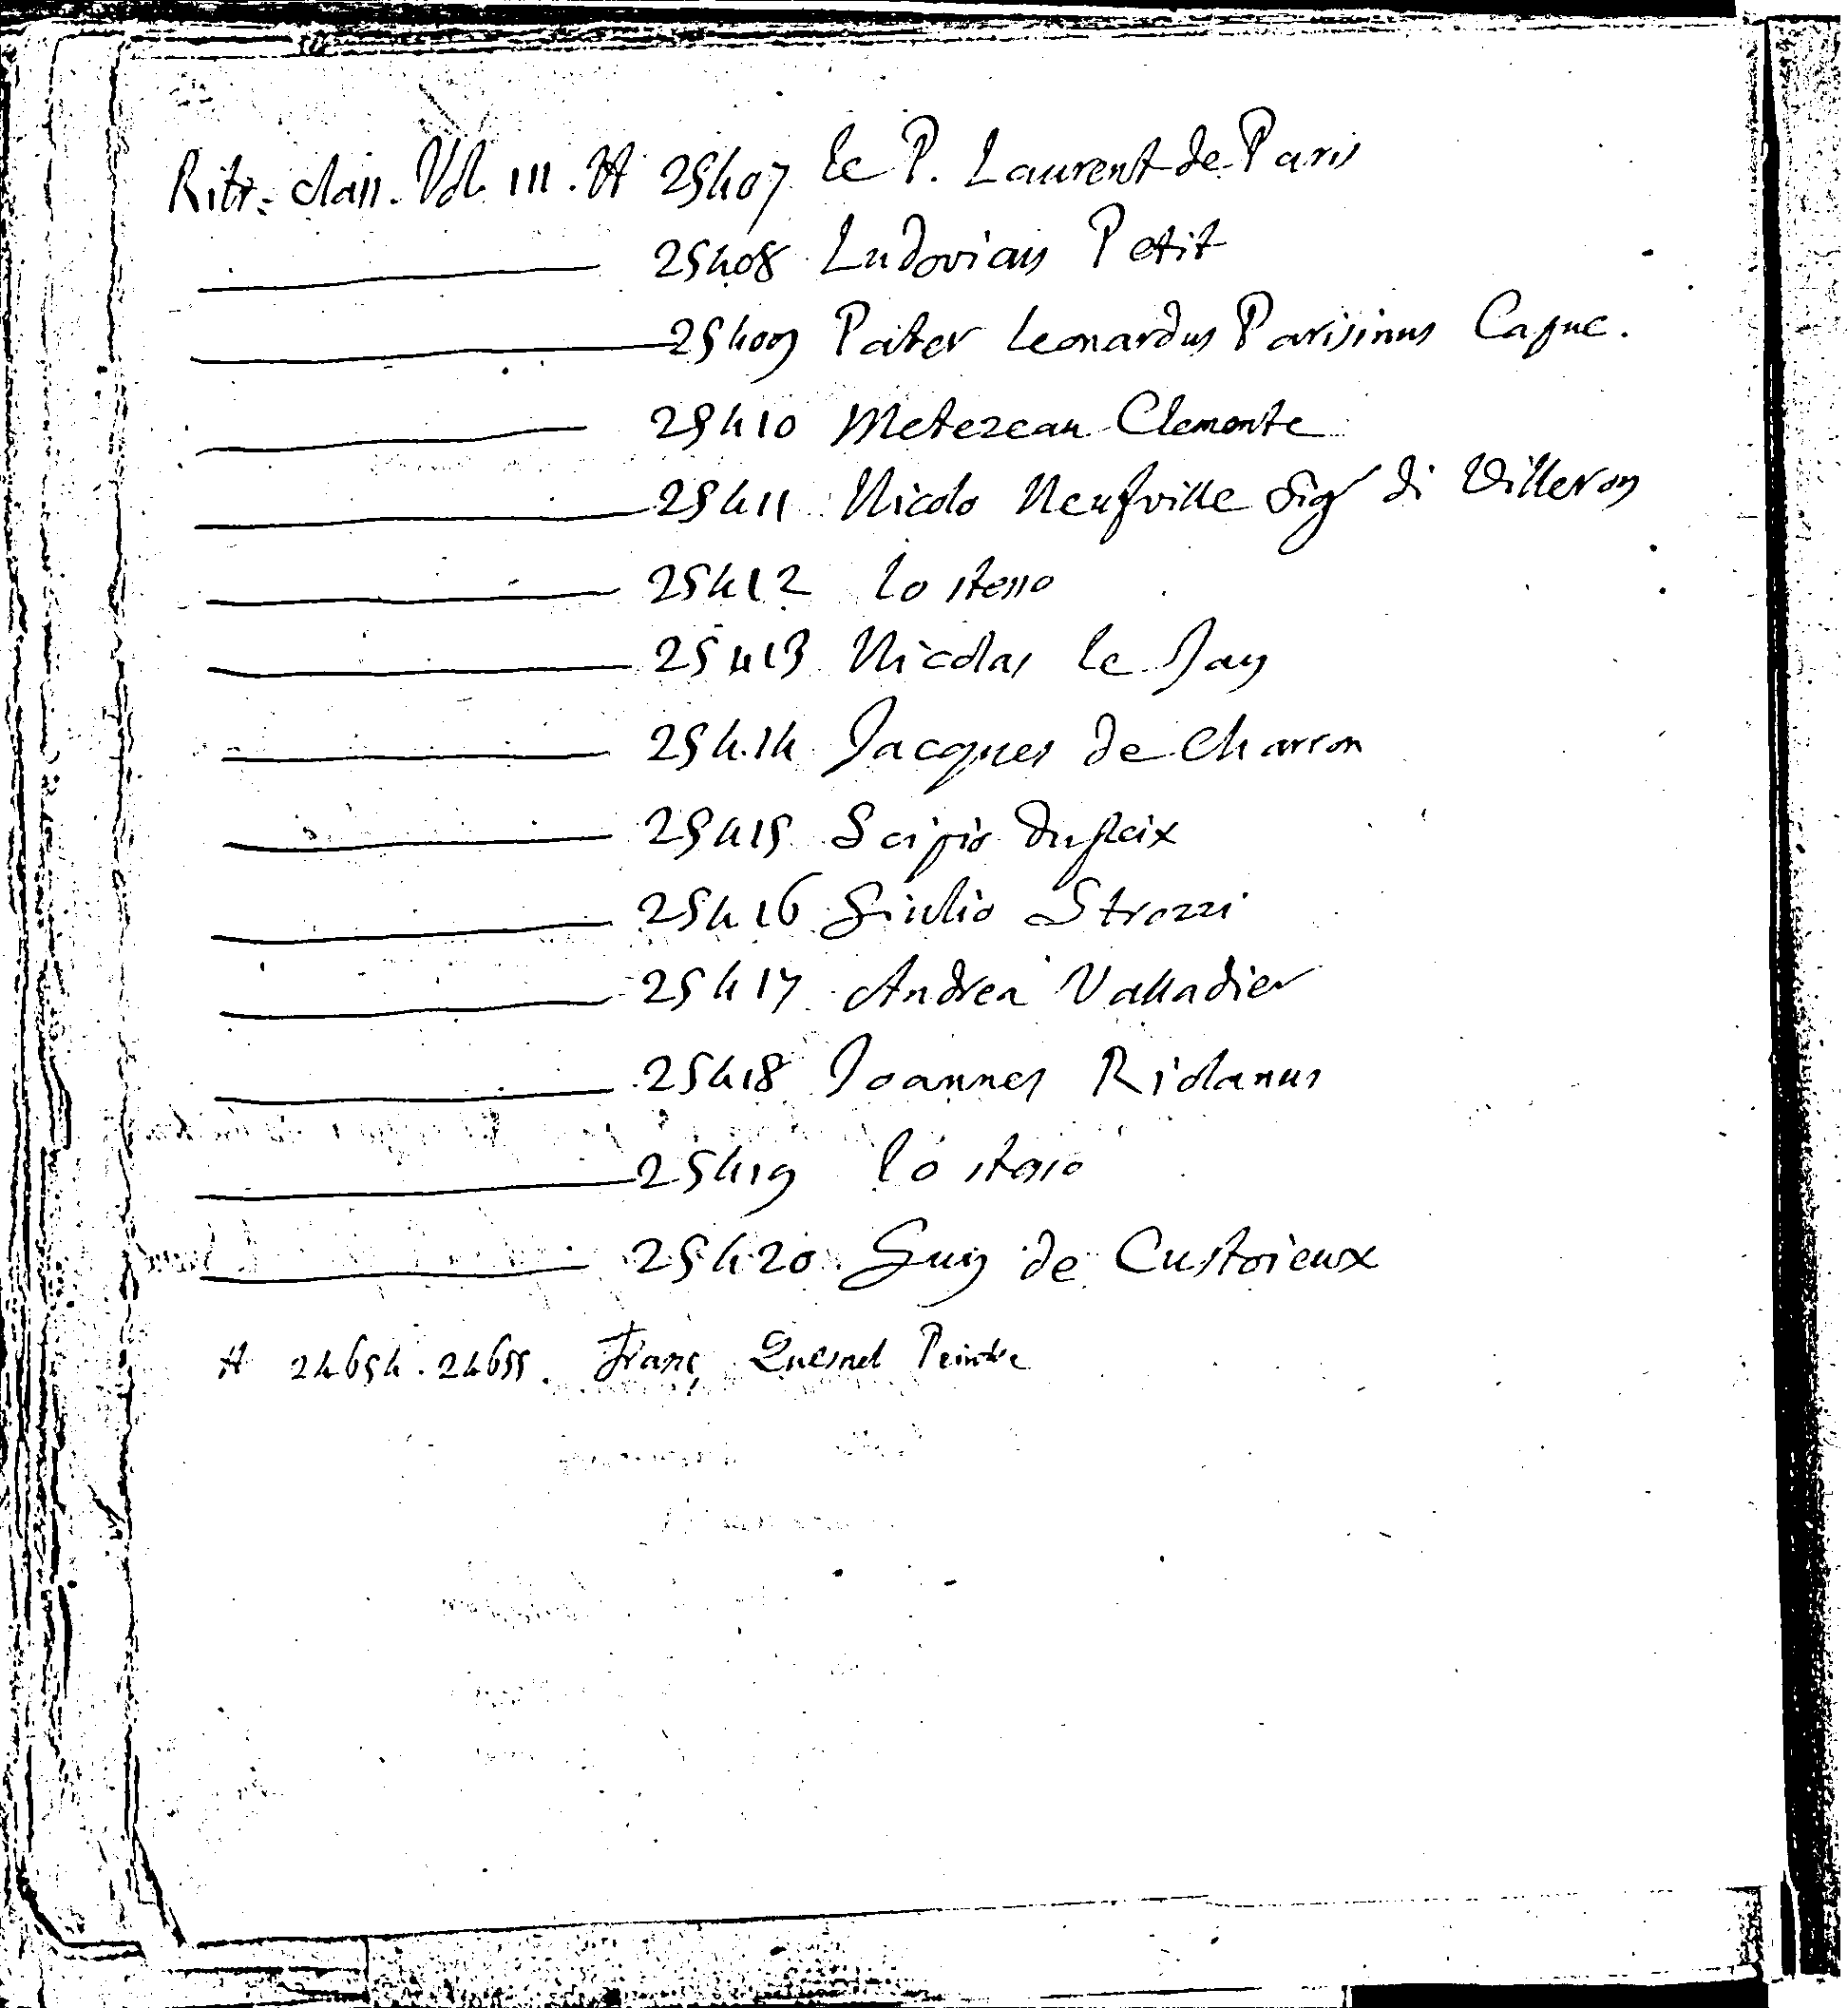 Ritr. class. Vol. III. A 25407 le P. Laurent de Paris
25408 Ludovicus Petit
25409 Pater Leonardus Parisinus Capuc.
25410 Metezeau Clemente
25411 Nicolo Neufville Sigr di Villeroy
25412 lo stesso
25413 Nicolas le Jay
25414 Jacques de Charron
25415 Scipio Dupleix
25416 Giulio Strozzi
25417 Andrea Valladier
25418 Joannes Riolanus
25419 lo stesso
25420 Guy de Custoieux
A 24654. 24655. Franç Quesnel Peintre